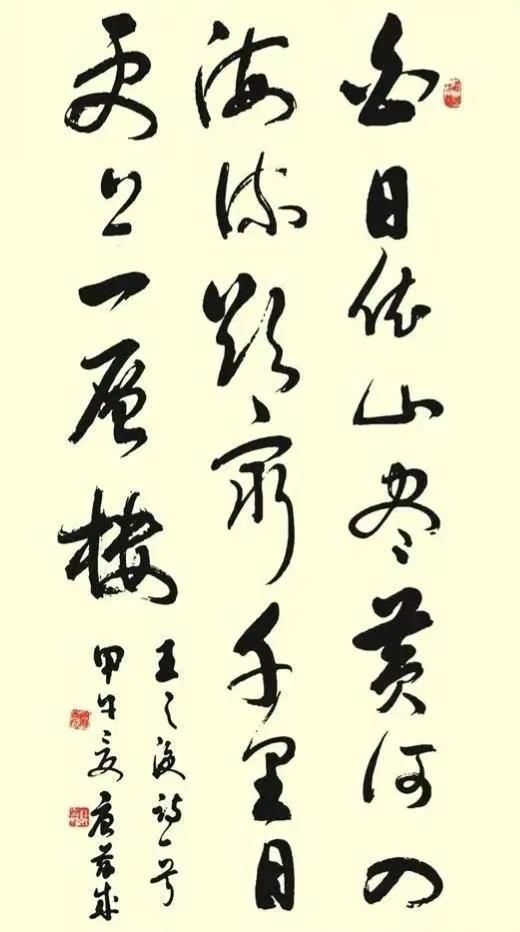 白日依山尽黄河入
海流欲穷千里目
更上一层楼
王之涣诗一首
甲午夏